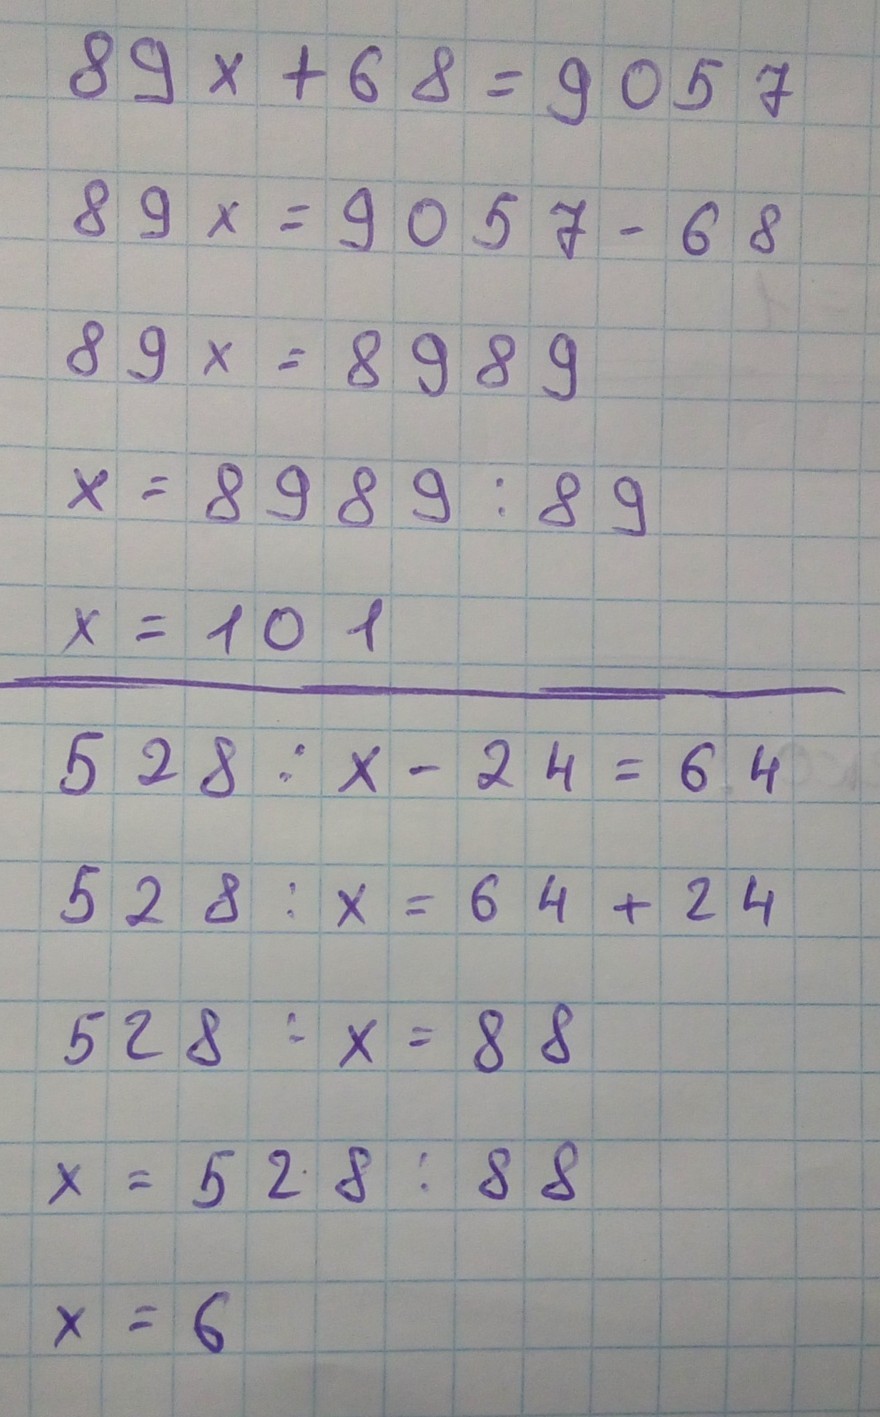 89x+68=9057
89x=9057-68
89x=8989
x=8989:89
x=101
528:x-24=64
528:x=64+24
528:x=88
x=528:88
x=6